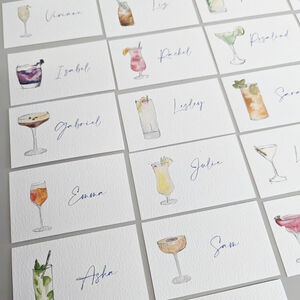 Vivienne
Liz
Isabel
Rachel
Rosalind
Gabriel
Lesley
Sara
Emma
Julie
Asha
Sam